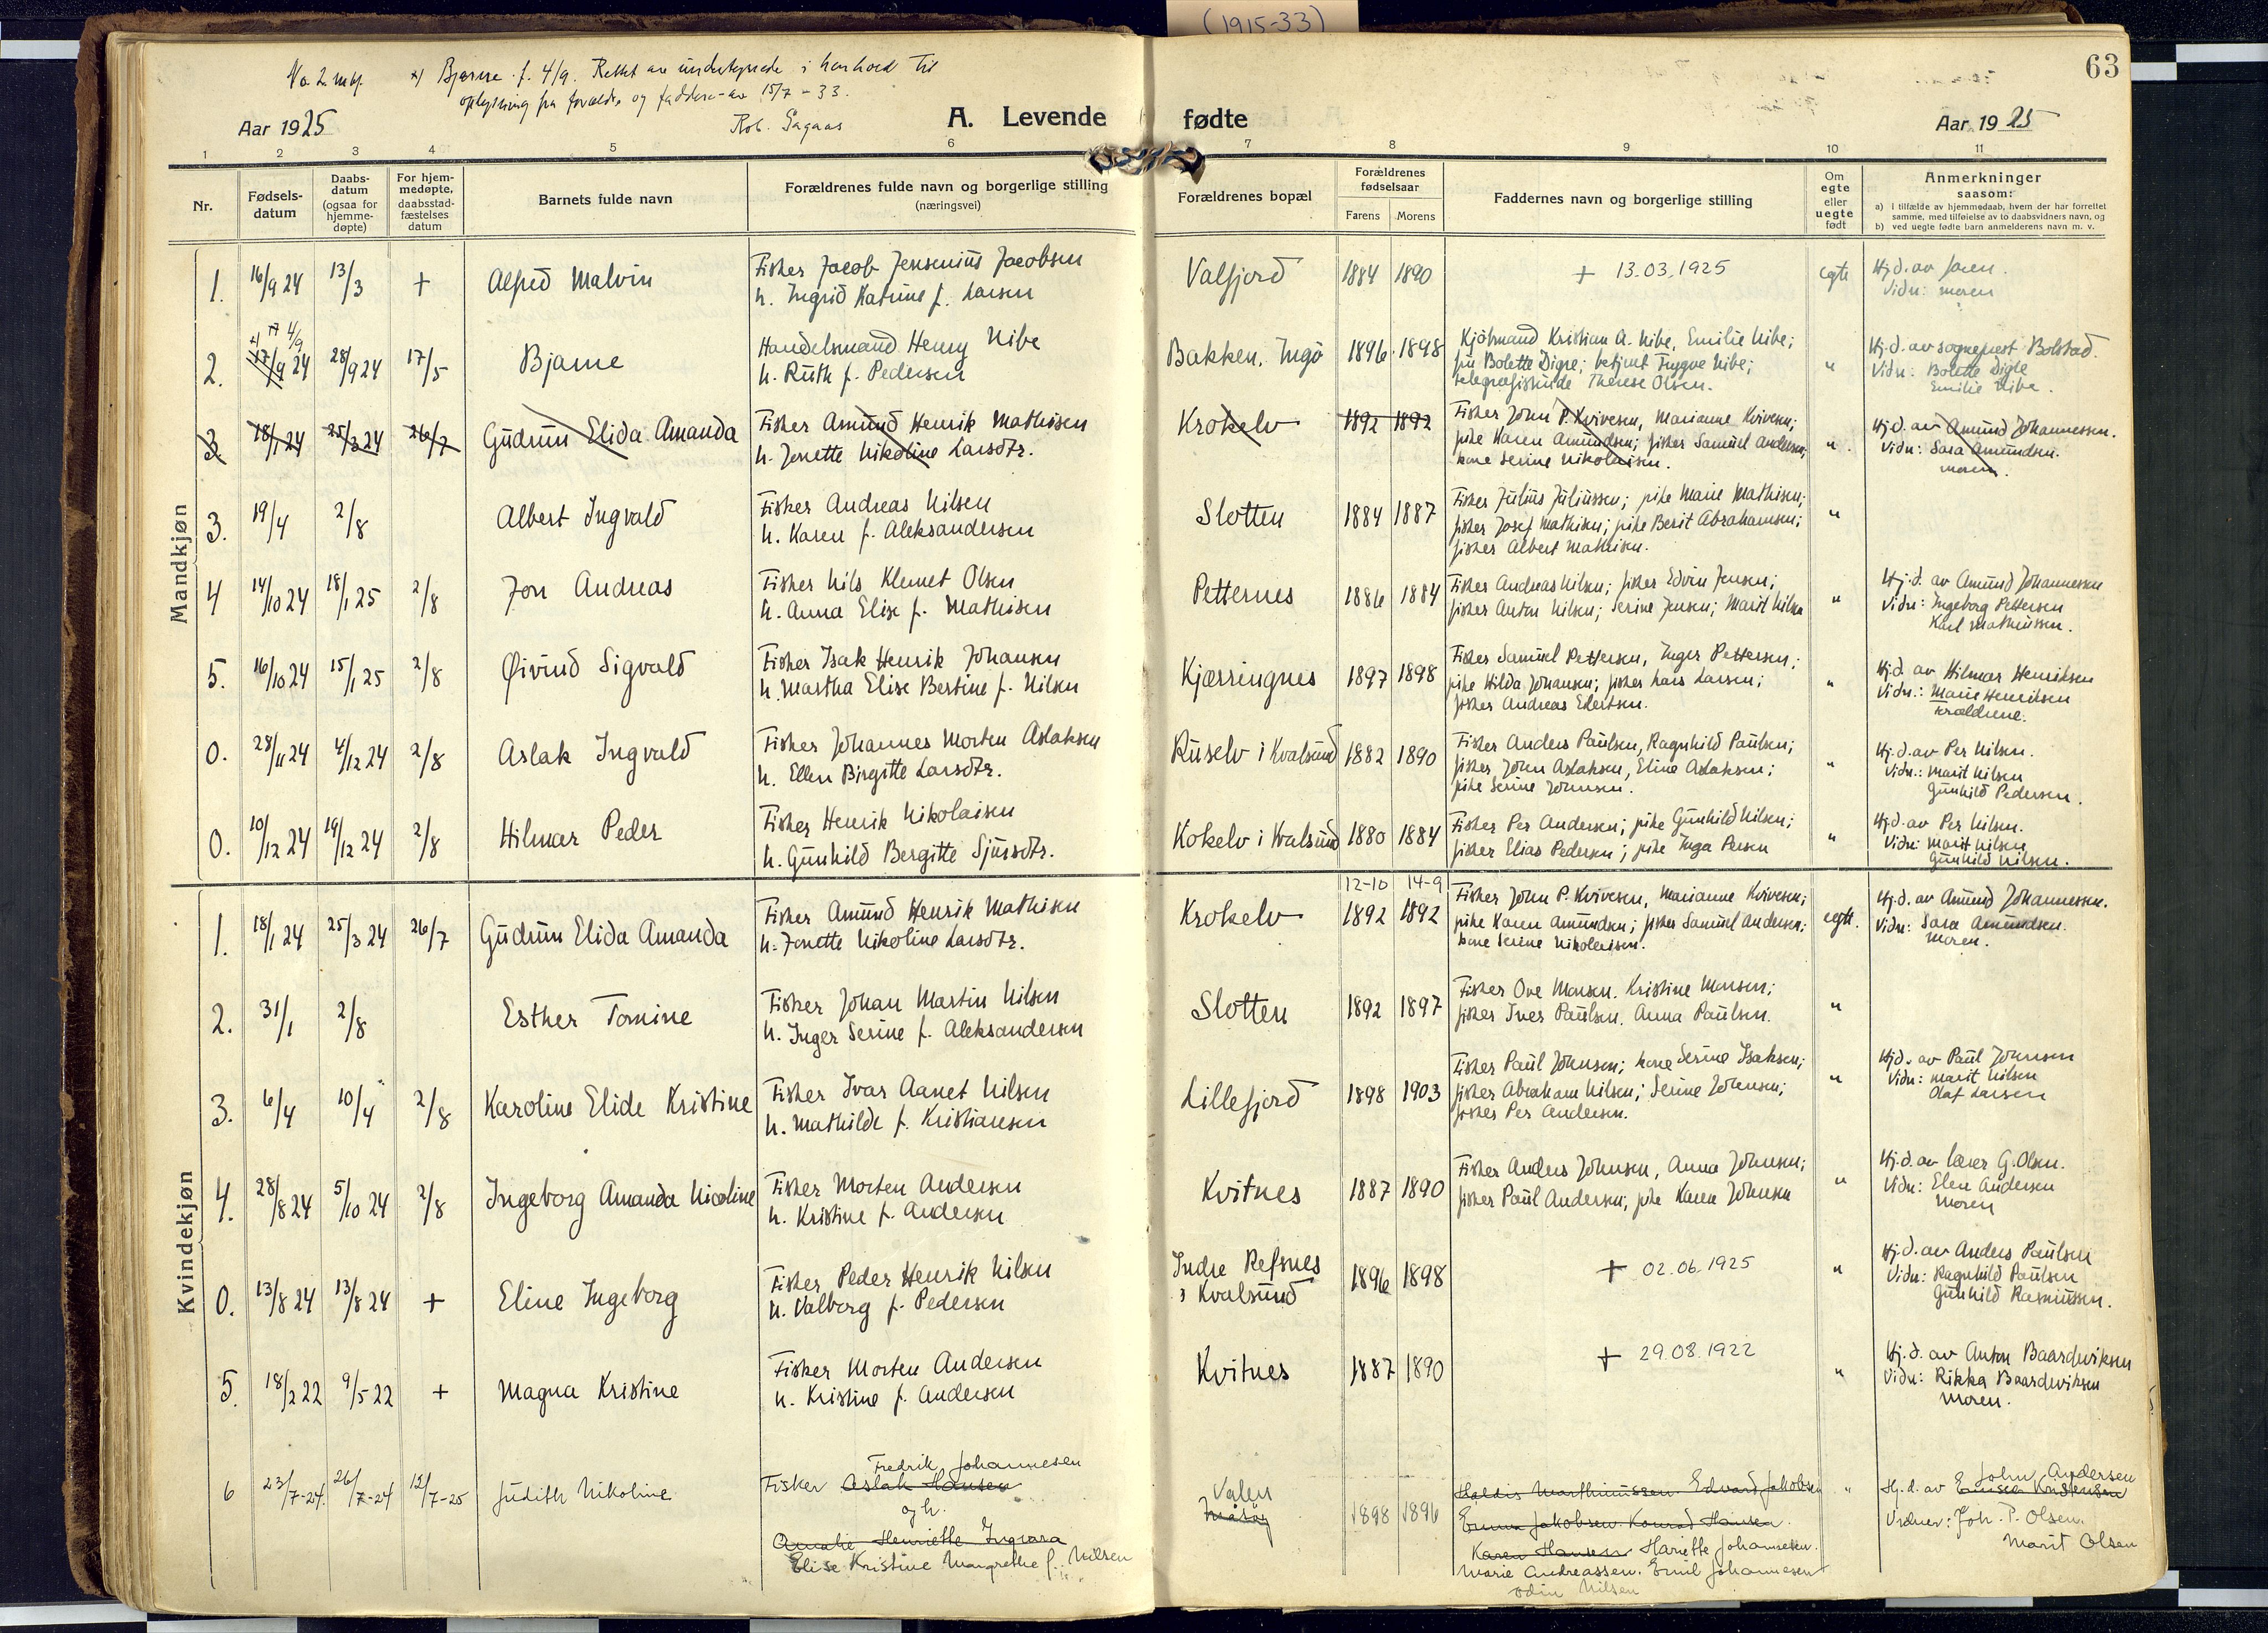 (1915-33)
63
No. 2 mkj. x) Bjarne f. 4/9. Rettet av undertegnede i henhold til
oplysning fra forældre og faddere av 15/7 - 33.
Rob. Sagaas
Aar 1925
A. Levende fødte
Aar 1925
1 2 3 4 5 6 7 8 9 10 11
Nr. Fødsels-datum Daabs-datum (ogsaa for hjemme-døpte) For hjem-medøpte, daabsstad-fæstelses datum Barnets fulde navn Forældrenes fulde navn og borgerlige stilling (næringsvei) Forældrenes bopæl Forældrenes fødselsaar Farens Morens Faddernes navn og borgerlige stilling Om egte eller uegte født Anmerkninger saasom:
a) i tilfælde av hjemmedaab, hvem der har forrettet samme, med tilføielse av to daabsvidners navn, og
b) ved uegte fødte barn anmelderens navn m. v.
Mandkjøn
1. 16/9 24 13/3 + Alfred Malvin Fisker Jacob Jensenius Jacobsen Valfjord 1884 1890 + 13.03.1925 egte Hj.d. av faren.
h. Ingrid Katrine f. Larsen Vidn: moren
x) 4/9
2. 17/9 24 28/9 24 17/5 Bjarne Handelsmand Henry Nibe Bakken, Ingö 1896 1898 Kjöbmand Kristian A. Nibe, Emilie Nibe; " Hj.d. av sogneprest Bolstad.
h. Ruth f. Pedersen fru Bolette Digre; betjent Trygve Nibe; Vidn: Bolette Digre
telegrafistinde Therese Olsen. Emilie Nibe.
3. 18/1 24 25/3 24 26/7 Gudrun Elida Amanda Fisker Amund Henrik Mathisen Krokelv 1892 1892 Fisker John P. Kvivesen, Marianne Kvivesen; " Hj.d. av Amund Johannessen.
h. Jonette Nikoline Larsdtr. pike Karen Amundsen; fisker Samuel Andersen; Vidn: Sara Amundsen.
kone Serine Nikolaisen. moren.
3. 19/4 2/8 Albert Ingvald Fisker Andreas Nilsen Slotten 1884 1887 Fisker Julius Juliussen; pike Marie Mathisen; "
h. Karen f. Aleksandersen fisker Josef Mathisen; pike Berit Abrahamsen;
fisker Albert Mathisen.
4 14/10 24 18/1 25 2/8 Jon Andreas Fisker Nils Klemet Olsen Petternes 1886 1884 Fisker Andreas Nilsen; fisker Edvin Jensen; " Hj.d. av Amund Johannessen
h. Anna Elise f. Mathisen fisker Anton Nilsen; Serine Jensen; Marit Nilsen Vidn: Ingeborg Pettersen
Karl Mathiussen.
5. 16/10 24 15/1 25 2/8 Øivind Sigvald Fisker Isak Henrik Johansen Kjærringnes 1897 1898 Fisker Samuel Pettersen, Inger Pettersen; " Hj.d. av Hilmar Henriksen
h. Martha Elise Bertine f. Nilsen pike Hilda Johansen; fisker Lars Larsen; Vidn.: Marie Henriksen
fisker Andreas Edertsen. forældrene.
0. 28/11 24 4/12 24 2/8 Aslak Ingvald Fisker Johannes Morten Aslaksen Ruselv i Kvalsund 1882 1890 Fisker Anders Paulsen, Ragnhild Paulsen; " Hj.d. av Per Nilsen.
h. Ellen Birgitte Larsdtr. fisker John Aslaksen, Eline Aslaksen; Vidn.: Marit Nilsen
pike Serine Johnsen. Gunhild Pedersen.
0. 10/12 24 19/12 24 2/8 Hilmar Peder Fisker Henrik Nikolaisen Kokelv i Kvalsund 1880 1884 Fisker Per Andersen; pike Gunhild Nilsen; " Hj.d. av Per Nilsen.
h. Gunhild Bergitte Sjursdtr. fisker Elias Pedersen; pike Inga Persen Vidn: Marit Nilsen
Gunhild Nilsen.
Kvindekjøn
12-10 14-9
1. 18/1 24 25/3 24 26/7 Gudrun Elida Amanda Fisker Amund Henrik Mathisen Krokelv 1892 1892 Fisker John P. Kvivesen, Marianne Kvivesen; egte. Hj.d. av Amund Johannessen.
h. Jonette Nikoline Larsdtr. pike Karen Amundsen; fisker Samuel Andersen; Vidn: Sara Amundsen.
kone Serine Nikolaisen. Moren.
2. 31/1 2/8 Esther Tomine Fisker Johan Martin Nilsen Slotten 1892 1897 Fisker Ove Monsen. Kristine Monsen; "
h. Inger Serine f. Aleksandersen fisker Iver Paulsen. Anna Paulsen.
3. 6/4 10/4 2/8 Karoline Elide Kristine Fisker Ivar Aanet Nilsen Lillefjord 1898 1903 Fisker Paul Johnsen; kone Serine Isaksen; " Hj.d. av Paul Johnsen
h. Mathilde f. Kristiansen fisker Abraham Nilsen; Serine Johnsen; Vidn: Marit Nilsen
fisker Per Andersen. Olaf Larsen
4. 28/8 24 5/10 24 2/8 Ingeborg Amanda Nicoline Fisker Morten Andersen Kvitnes 1887 1890 Fisker Anders Johnsen, Anna Johnsen; " Hj.d. av lærer G. Olsen.
h. Kristine f. Andersen fisker Paul Andersen; pike Karen Johnsen Vidn: Elen Andersen
Moren
0. 13/8 24 13/8 24 + Eline Ingeborg Fisker Peder Henrik Nilsen Indre Refsnes i Kvalsund 1896 1898 + 02.06.1925 " Hj.d. av Anders Paulsen
h. Valborg f. Pedersen Vidn: Ragnhild Paulsen
Gunhild Rasmussen.
5. 18/2 22 9/5 22 + Magna Kristine Fisker Morten Andersen Kvitnes 1887 1890 + 29.08.1922 " Hj.d. av Anton Baardviksen
h. Kristine f. Andersen Vidn: Rikka Baardviksen
Moren.
6 23/7-24. 26/7-24 12/7-25 Judith Nikoline Fisker Aslak Hansen Fredrik Johannesen Valen Måsöy 1898 1896 Haldis Marthinussen Edvard Jakobsen " Hj.d. av John Andersen
og h. Emma Jakobsen. Konrad Hansen. Vidner: Joh. P. Olsen.
Amalie Henriette Ingvara Karen Hansen Hariette Johannesen. Marit Olsen
Elise Kristine Margrethe f. Nilsen Marie Andreassen. Emil Johannesen
Odin Nilsen